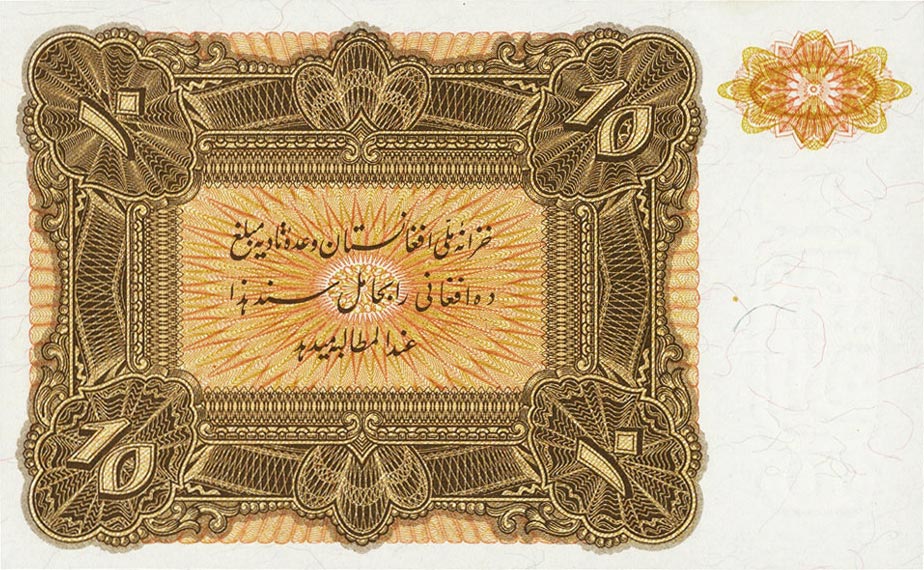 ۱۰
10
خزانه ملّی افغانستان وعدهٔ تادیه مبلغ
ده افغانی را بحامل سند هذا
عندالمطالبه میدهد
10
۱۰